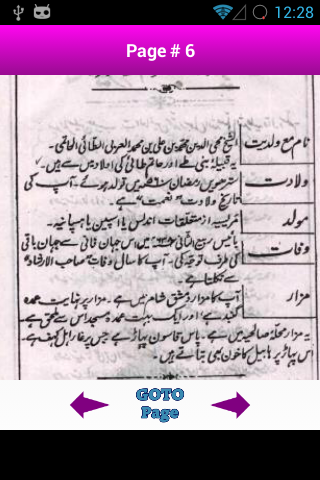 12:28
Page # 6
نام مع ولدیت
شیخ محی الدین محمد بن علی بن محمد العربی الطائی الحاتمی۔
یہ قبیلہ بنی طے اور حاتم طائی کی اولاد میں سے ہیں۔
ولادت
سترھویں رمضان میں تولد ہوئے۔ آپ کی
تاریخ ولادت "نعمت" ہے۔
مولد
مرسیہ از متعلقات اندلس یا اسپین یا ہسپانیہ۔
وفات
بائیس ربیع الثانی میں اس جہان فانی سے جہان باقی
کی طرف توجہ کی۔ آپ کا سال وفات "صاحب الارشاد"
سے نکلتا ہے۔
مزار
آپ کا مزار دمشق شام میں ہے۔ مزار پر نہایت عمدہ
گنبد ہے۔ اور ایک بہت عمدہ مسجد اس سے ملحق ہے۔
یہ مزار محلہ صالحیہ میں ہے۔ پاس قاسیون پہاڑ ہے جس پر غار اہل کہف ہے۔
اس پہاڑ پر ہابیل کا خون بھی بتاتے ہیں۔
GOTO
Page